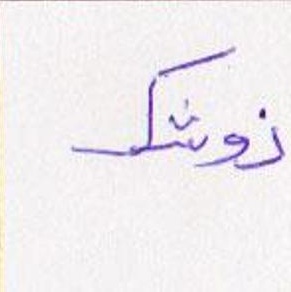 زوشک